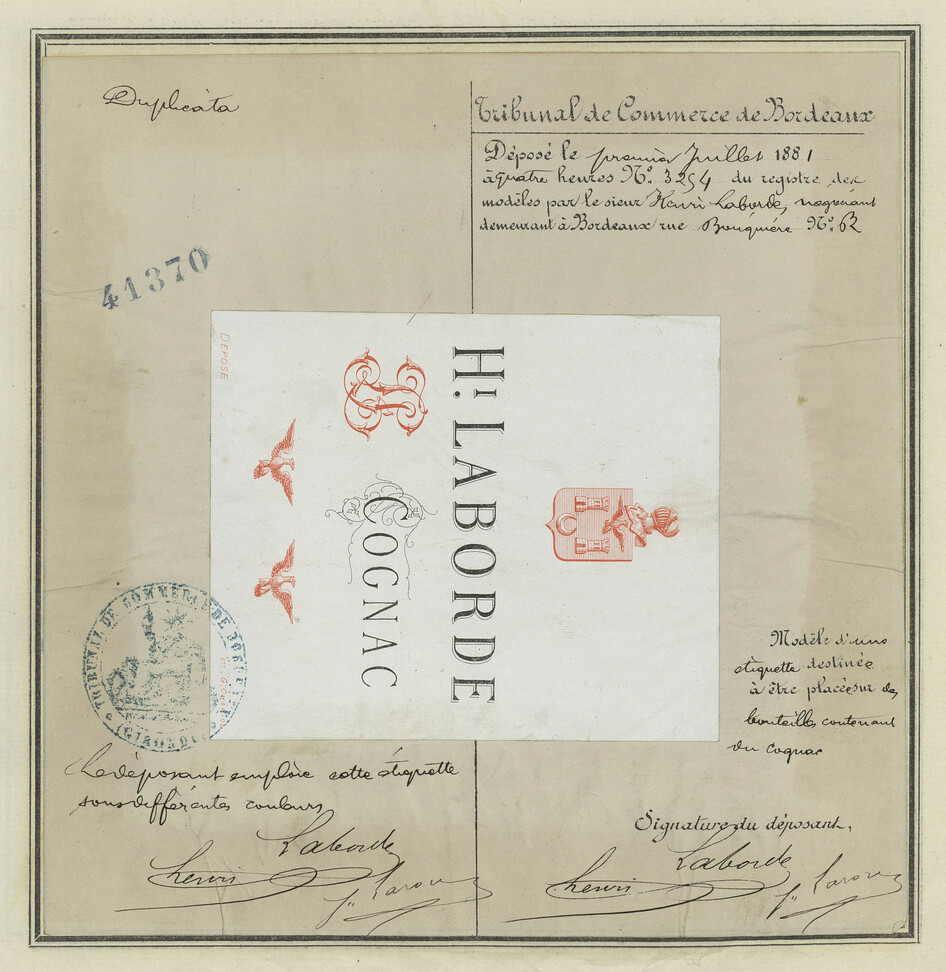 Duplicata
Tribunal de Commerce de Bordeaux
Déposé le premier Juillet 1881
à quatre heures N° 3254 du registre des
modèles par le sieur Henri Laborde, négociant
demeurant à Bordeaux rue Bouquière N°. 62
41370
DÉPOSÉ
HI. LABORDE
COGNAC
TRIBUNAL DE COMMERCE DE BORDEAUX
(GIRONDE)
Modèle d'une
étiquette destinée
à être placée sur des
bouteilles contenant
du cognac
Le déposant emploie cette étiquette
sous différentes couleurs
henri Laborde
Signature du déposant,
henri Laborde